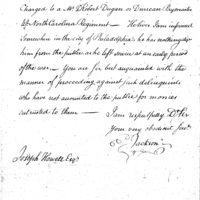 Charged to a Mr. Robert Dugan or Duncan Paymaster
6th North Carolina Regiment — He lives I am informed
Somewhere in the city of Philadelphia he has nothing to
him from the public as he left service at an early period
of the war — You are far best acquainted with the
manner of proceeding against such delinquents
who have not accounted to the public for monies
entrusted to them —
I am respectfully Dr Sir
Your very obedient Servt
Jackson
Joseph Howell Esqr